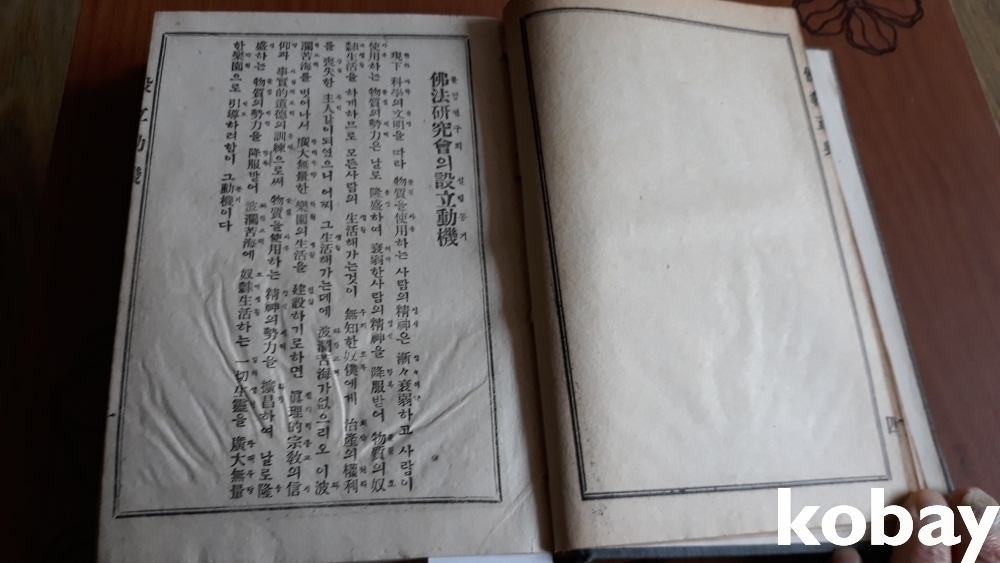 佛法研究會의設立動機
現下 科學의文明을 따라 物質을使用하는 사람의精神은 漸々衰弱하고 사람이
使用하는 物質의勢力은 날로 隆盛하여 衰弱한사람의精神을 降服받어 物質의奴
隸生活을 하게하므로 모든사람의 生活해가는것이 無知한奴僕에게 治産의權利
를 喪失한 主人같이되였으니 어찌 그生活해가는데에 波瀾苦海가없으리오 이波
瀾苦海를 벗어나서 廣大無量한 樂園의生活을 建設하기로하면 眞理的宗敎의信
仰과 事實的道德의訓練으로써 物質을使用하는 精神의勢力을 擴昌하여 날로隆
盛하는 物質의勢力을 降服받어 波瀾苦海에 奴隸生活하는 一切生靈을 廣大無量
한樂園으로 引導하려함이 그動機이다
設立動機
一
四
kobay